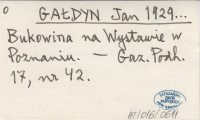 GAŁDYN Jan 1929...
Bukowina na Wystawie w
Poznaniu. — Gaz. Podh.
17, nr 42.